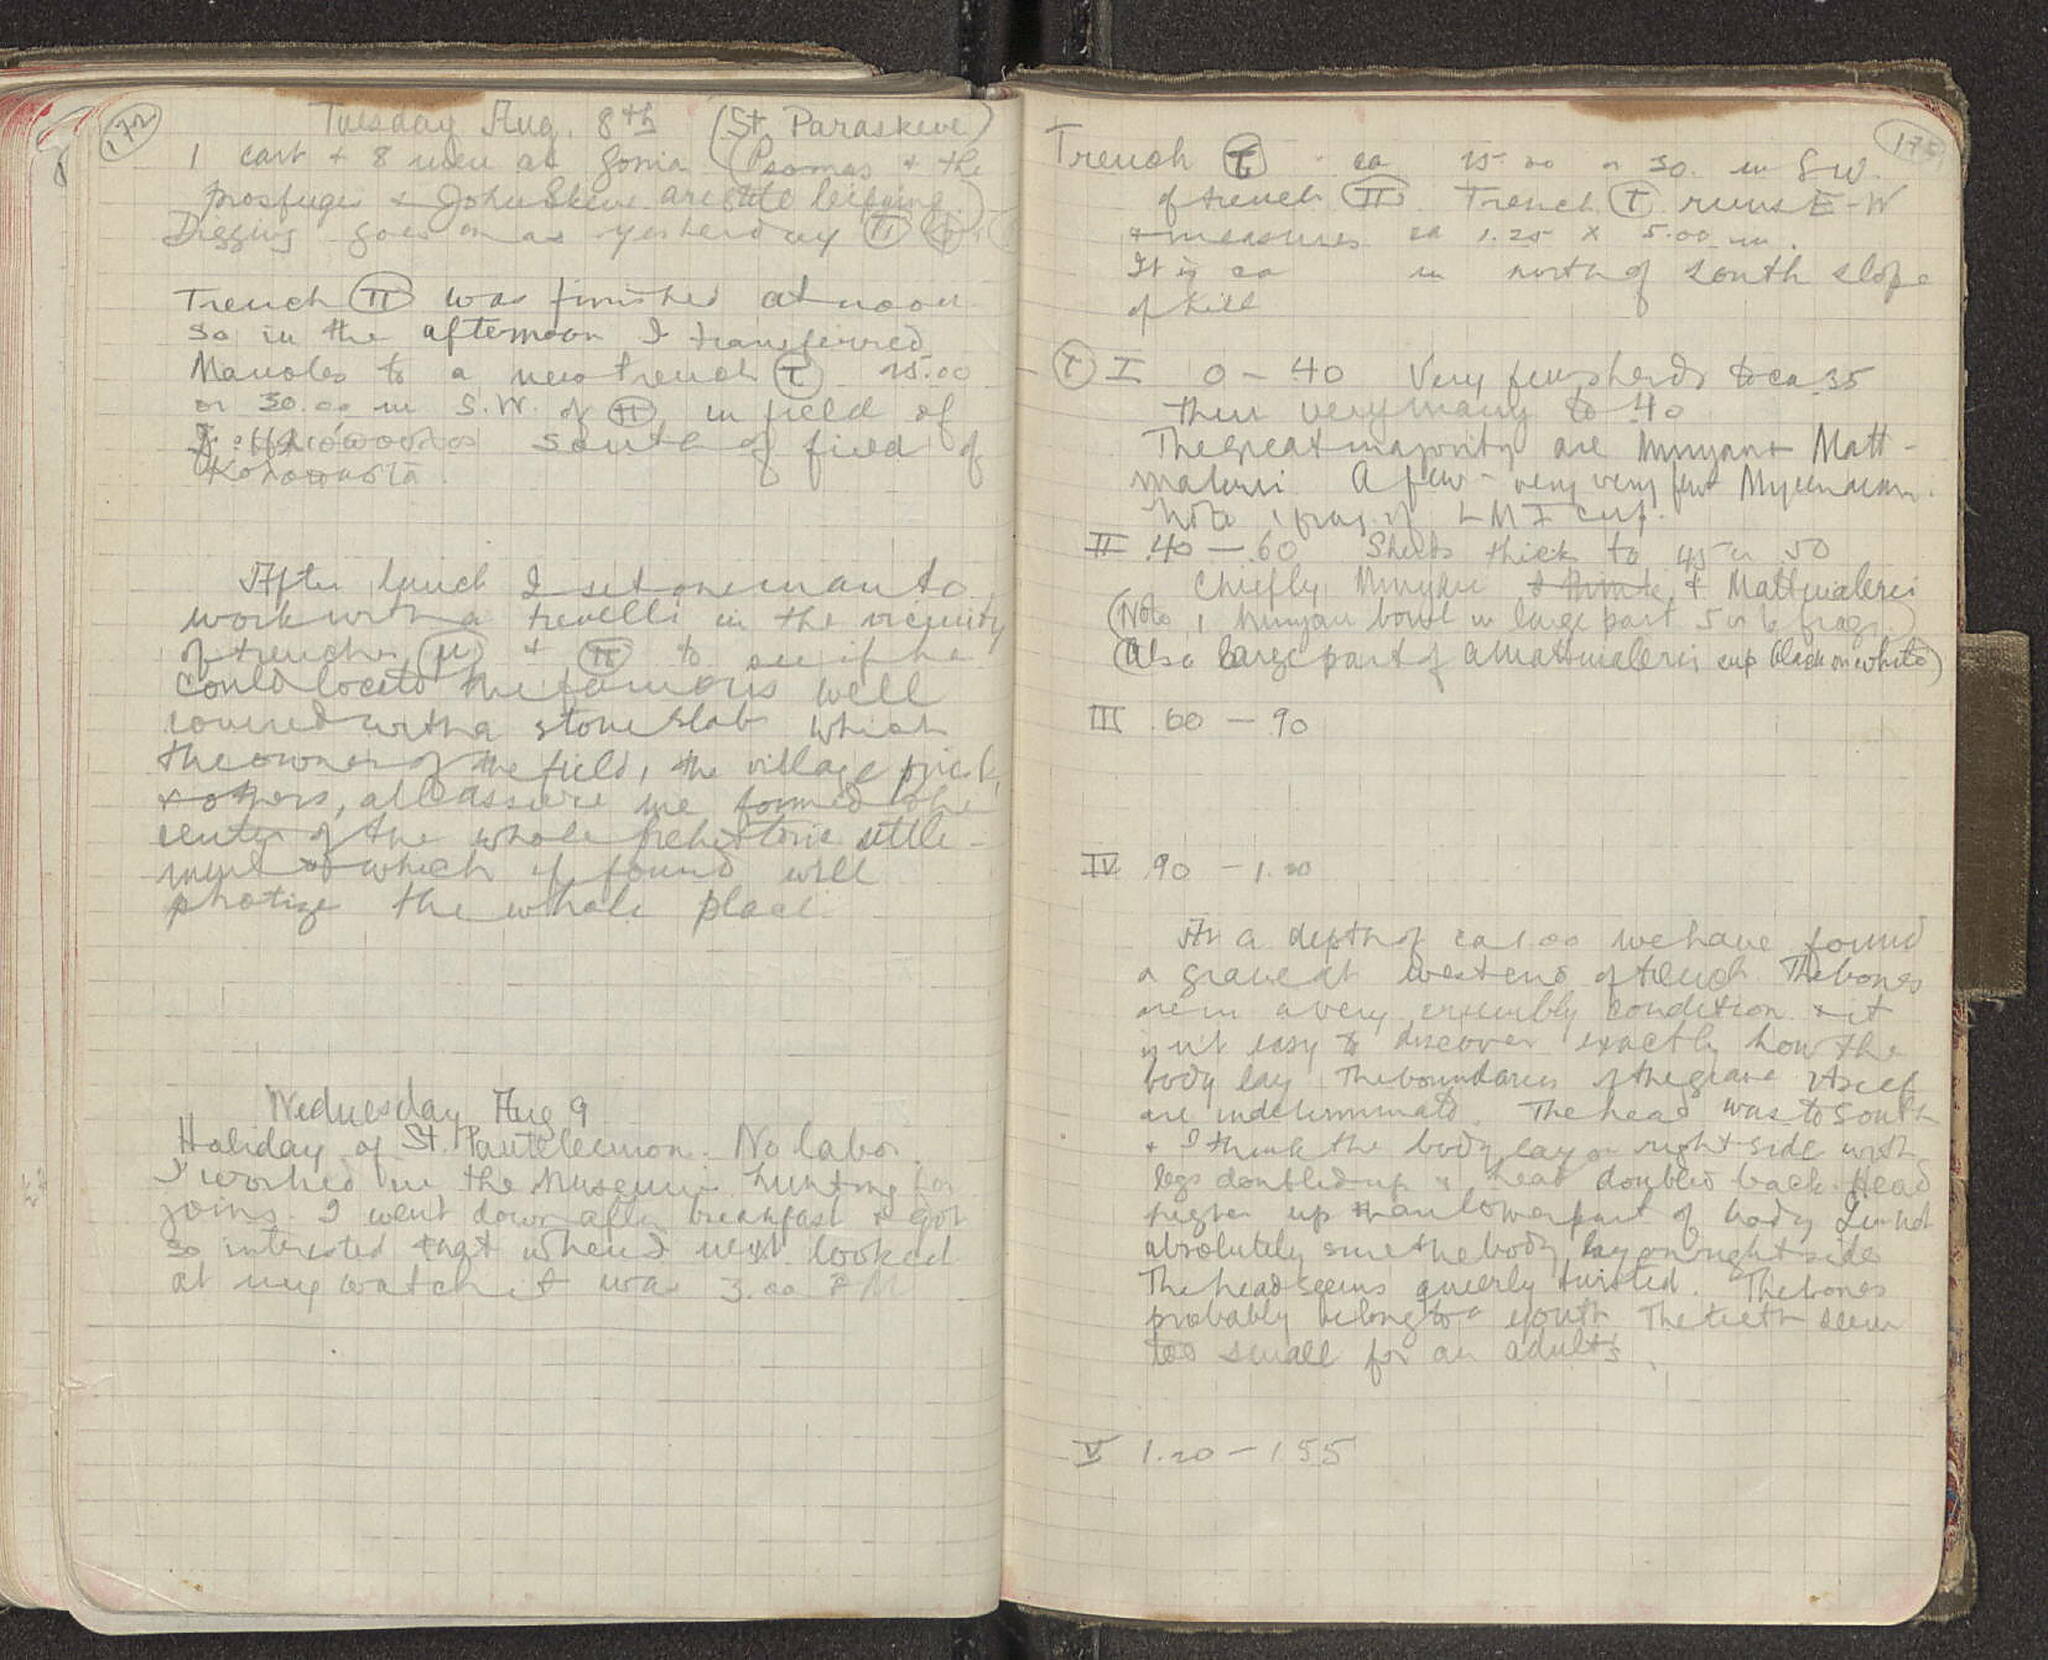 172
Tuesday Aug. 8th (St. Paraskeve)
1 cart + 8 men at Gonia (Psomas + the
prosfuges + John Skeve are still helping)
Digging goes on as yesterday (Π)
Trench (Π) was finished at noon
so in the afternoon I transferred
Manoles to a new trench (T) 15.00
or 30.00 m S.W. of (Π) in field of
south of field of
After lunch I set one man to
work with a trevelli in the vicinity
of trenches (μ) + (Π) to see if he
could locate the famous well
covered with a stone slab which
the owner of the field, the village priest,
+ others, all assure me formed the
center of the whole prehistoric settle-
ment + which if found will
photize the whole place.
Wednesday Aug 9
Holiday of St. Panteleemon. No labor.
I worked in the Museum hunting for
joins. I went down after breakfast + got
so interested that when I next looked
at my watch it was 3.00 P M
173
Trench (T) ca 15.00 or 30. m SW.
of trench (Π). Trench (T) runs E-W
+ measures ca 1.25 x 5.00 m.
It is ca m north of south slope
of hill
(T) I 0 - .40 Very few sherds to ca .35
then very many to .40
The great majority are Minyan + Matt-
malerei. A few - very very few Mycenaean.
Note 1 frag. of LM I cup.
II .40 - .60 Sherds thick to 45 or 50
Chiefly Minyan + Mattmalerei
(Note 1 Minyan bowl in large part 5 or 6 frags.)
(Also large part of a Mattmalerei cup black on white)
III .60 - .90
IV .90 - 1.20
At a depth of ca 1.00 we have found
a grave at west end of trench. The bones
are in a very crumbly condition + it
isn't easy to discover exactly how the
body lay. The boundaries of the grave itself
are indeterminate. The head was to south
+ I think the body lay on right side with
legs doubled up + head doubled back. Head
higher up than lower part of body. I'm not
absolutely sure the body lay on right side
The head seems queerly twisted. The bones
probably belong to a youth. The teeth seem
too small for an adult's.
V 1.20 - 1.55